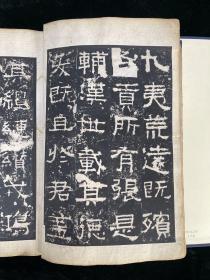 九夷荒遠既殯
各貢所有張是
輔漢世載其德
爰既且於君蓋
其繵縺纘戎鴻